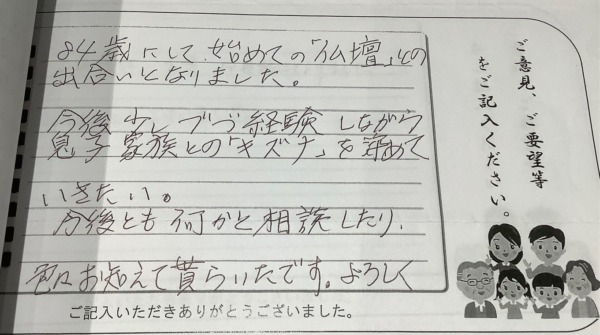 ご意見、ご要望等
をご記入ください。
84歳にして始めての「仏壇」との
出合いとなりました。
今後少しづつ経験しながら
息子家族との「キズナ」を縮めて
いきたい。
今後とも何かと相談したり、
色々お知えて貰らいたです。よろしく
ご記入いただきありがとうございました。